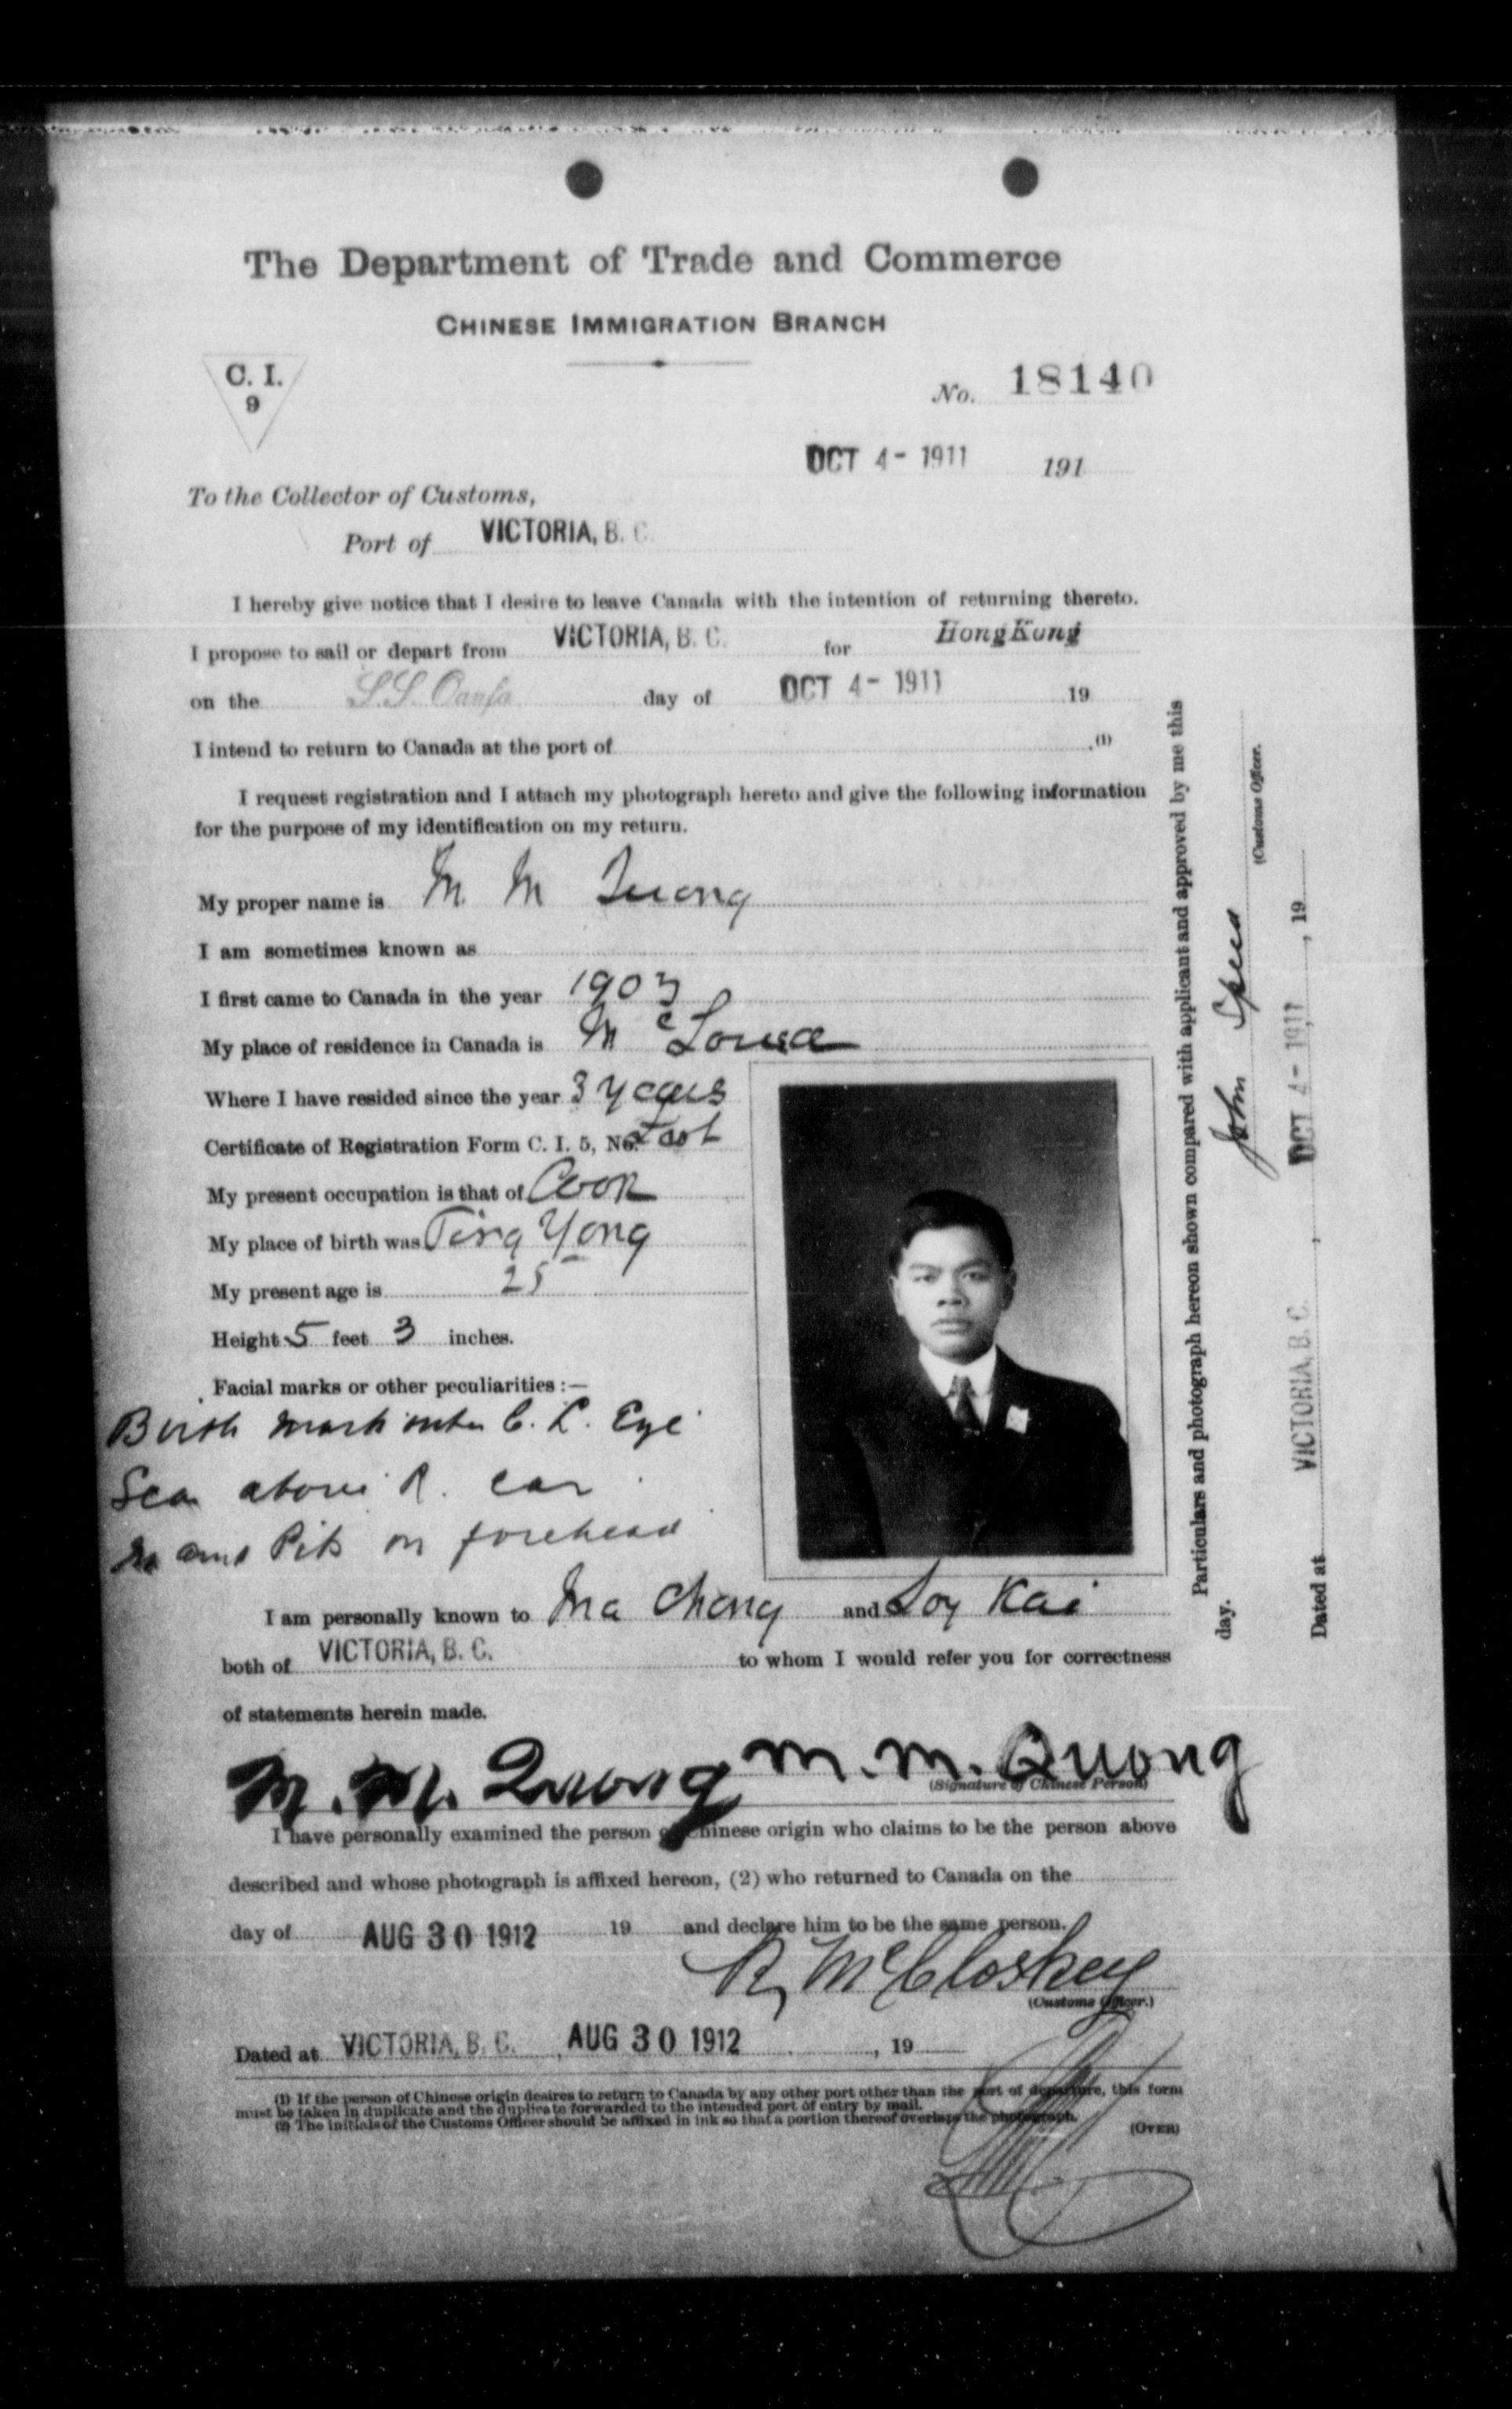 The Department of Trade and Commerce
CHINESE IMMIGRATION BRANCH
C. I.
9
No. 18140
OCT 4- 1911 191
To the Collector of Customs,
Port of VICTORIA, B. C.
I hereby give notice that I desire to leave Canada with the intention of returning thereto.
I propose to sail or depart from VICTORIA, B. C. for Hong Kong
on the S.S. Oanfa day of OCT 4- 1911 19
I intend to return to Canada at the port of .(1)
I request registration and I attach my photograph hereto and give the following information
for the purpose of my identification on my return.
My proper name is M. M Quong
I am sometimes known as
I first came to Canada in the year 1903
My place of residence in Canada is
Where I have resided since the year 3 years
Certificate of Registration Form C. I. 5, No. Lost
My present occupation is that of Cook
My place of birth was Ting Yong
My present age is 25
Height 5 feet 3 inches.
Facial marks or other peculiarities :—
Birth mark outer C. L. Eye
Scar above R. ear
Pits on forehead
I am personally known to Ma Chong and Loy Kai
both of VICTORIA, B. C. to whom I would refer you for correctness
of statements herein made.
M. M. Quong M. M. Quong
(Signature of Chinese Person)
I have personally examined the person of Chinese origin who claims to be the person above
described and whose photograph is affixed hereon, (2) who returned to Canada on the
day of AUG 30 1912 19 and declare him to be the same person.
R McCloskey
(Customs Officer.)
Dated at VICTORIA, B. C. AUG 30 1912 , 19
(1) If the person of Chinese origin desires to return to Canada by any other port other than the port of departure, this form
must be taken in duplicate and the duplicate forwarded to the intended port of entry by mail.
(2) The initials of the Customs Officer should be affixed in ink so that a portion thereof overlaps the photograph.
(OVER)
Particulars and photograph hereon shown compared with applicant and approved by me this
day.
John
(Customs Officer.
Dated at VICTORIA, B. C. , OCT 4- 1911 , 19